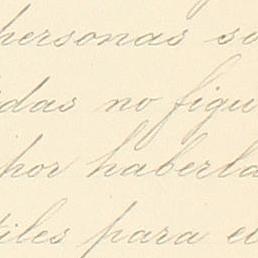 personas so
idas no figu
por haberla
tiles para el